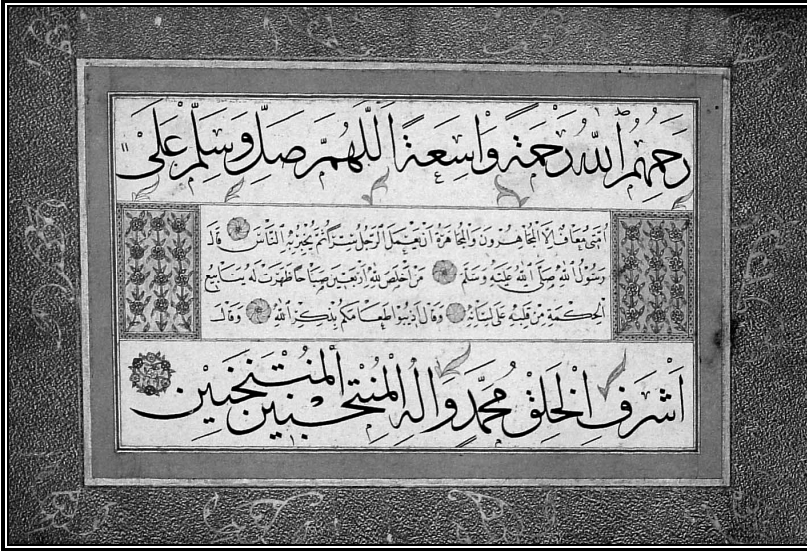 رَحِمَهُمُ اللّٰهُ رَحْمَةً وَاسِعَةً اَللّٰهُمَّ صَلِّ وَسَلِّمْ عَلٰى
اُمَّتِى مُعَافًى اِلَّا الْمُجَاهِرُونَ وَالْمُجَاهَرَةُ اَنْ يَعْمَلَ الرَّجُلُ سِرًّا ثُمَّ يُخْبِرُ بِهِ النَّاسَ قَالَ
رَسُولُ اللّٰهِ صَلَّى اللّٰهُ عَلَيْهِ وَسَلَّمَ مَنْ اَخْلَصَ لِلّٰهِ اَرْبَعِينَ صَبَاحًا ظَهَرَتْ لَهُ يَنَابِيعُ
الْحِكْمَةِ مِنْ قَلْبِهِ عَلَى لِسَانِهِ وَقَالَ اَذِيبُوا طَعَامَكُمْ بِذِكْرِ اللّٰهِ وَقَالَ
اَشْرَفِ الْخَلْقِ مُحَمَّدٍ وَاٰلِهِ الْمُنْتَجَبِينَ